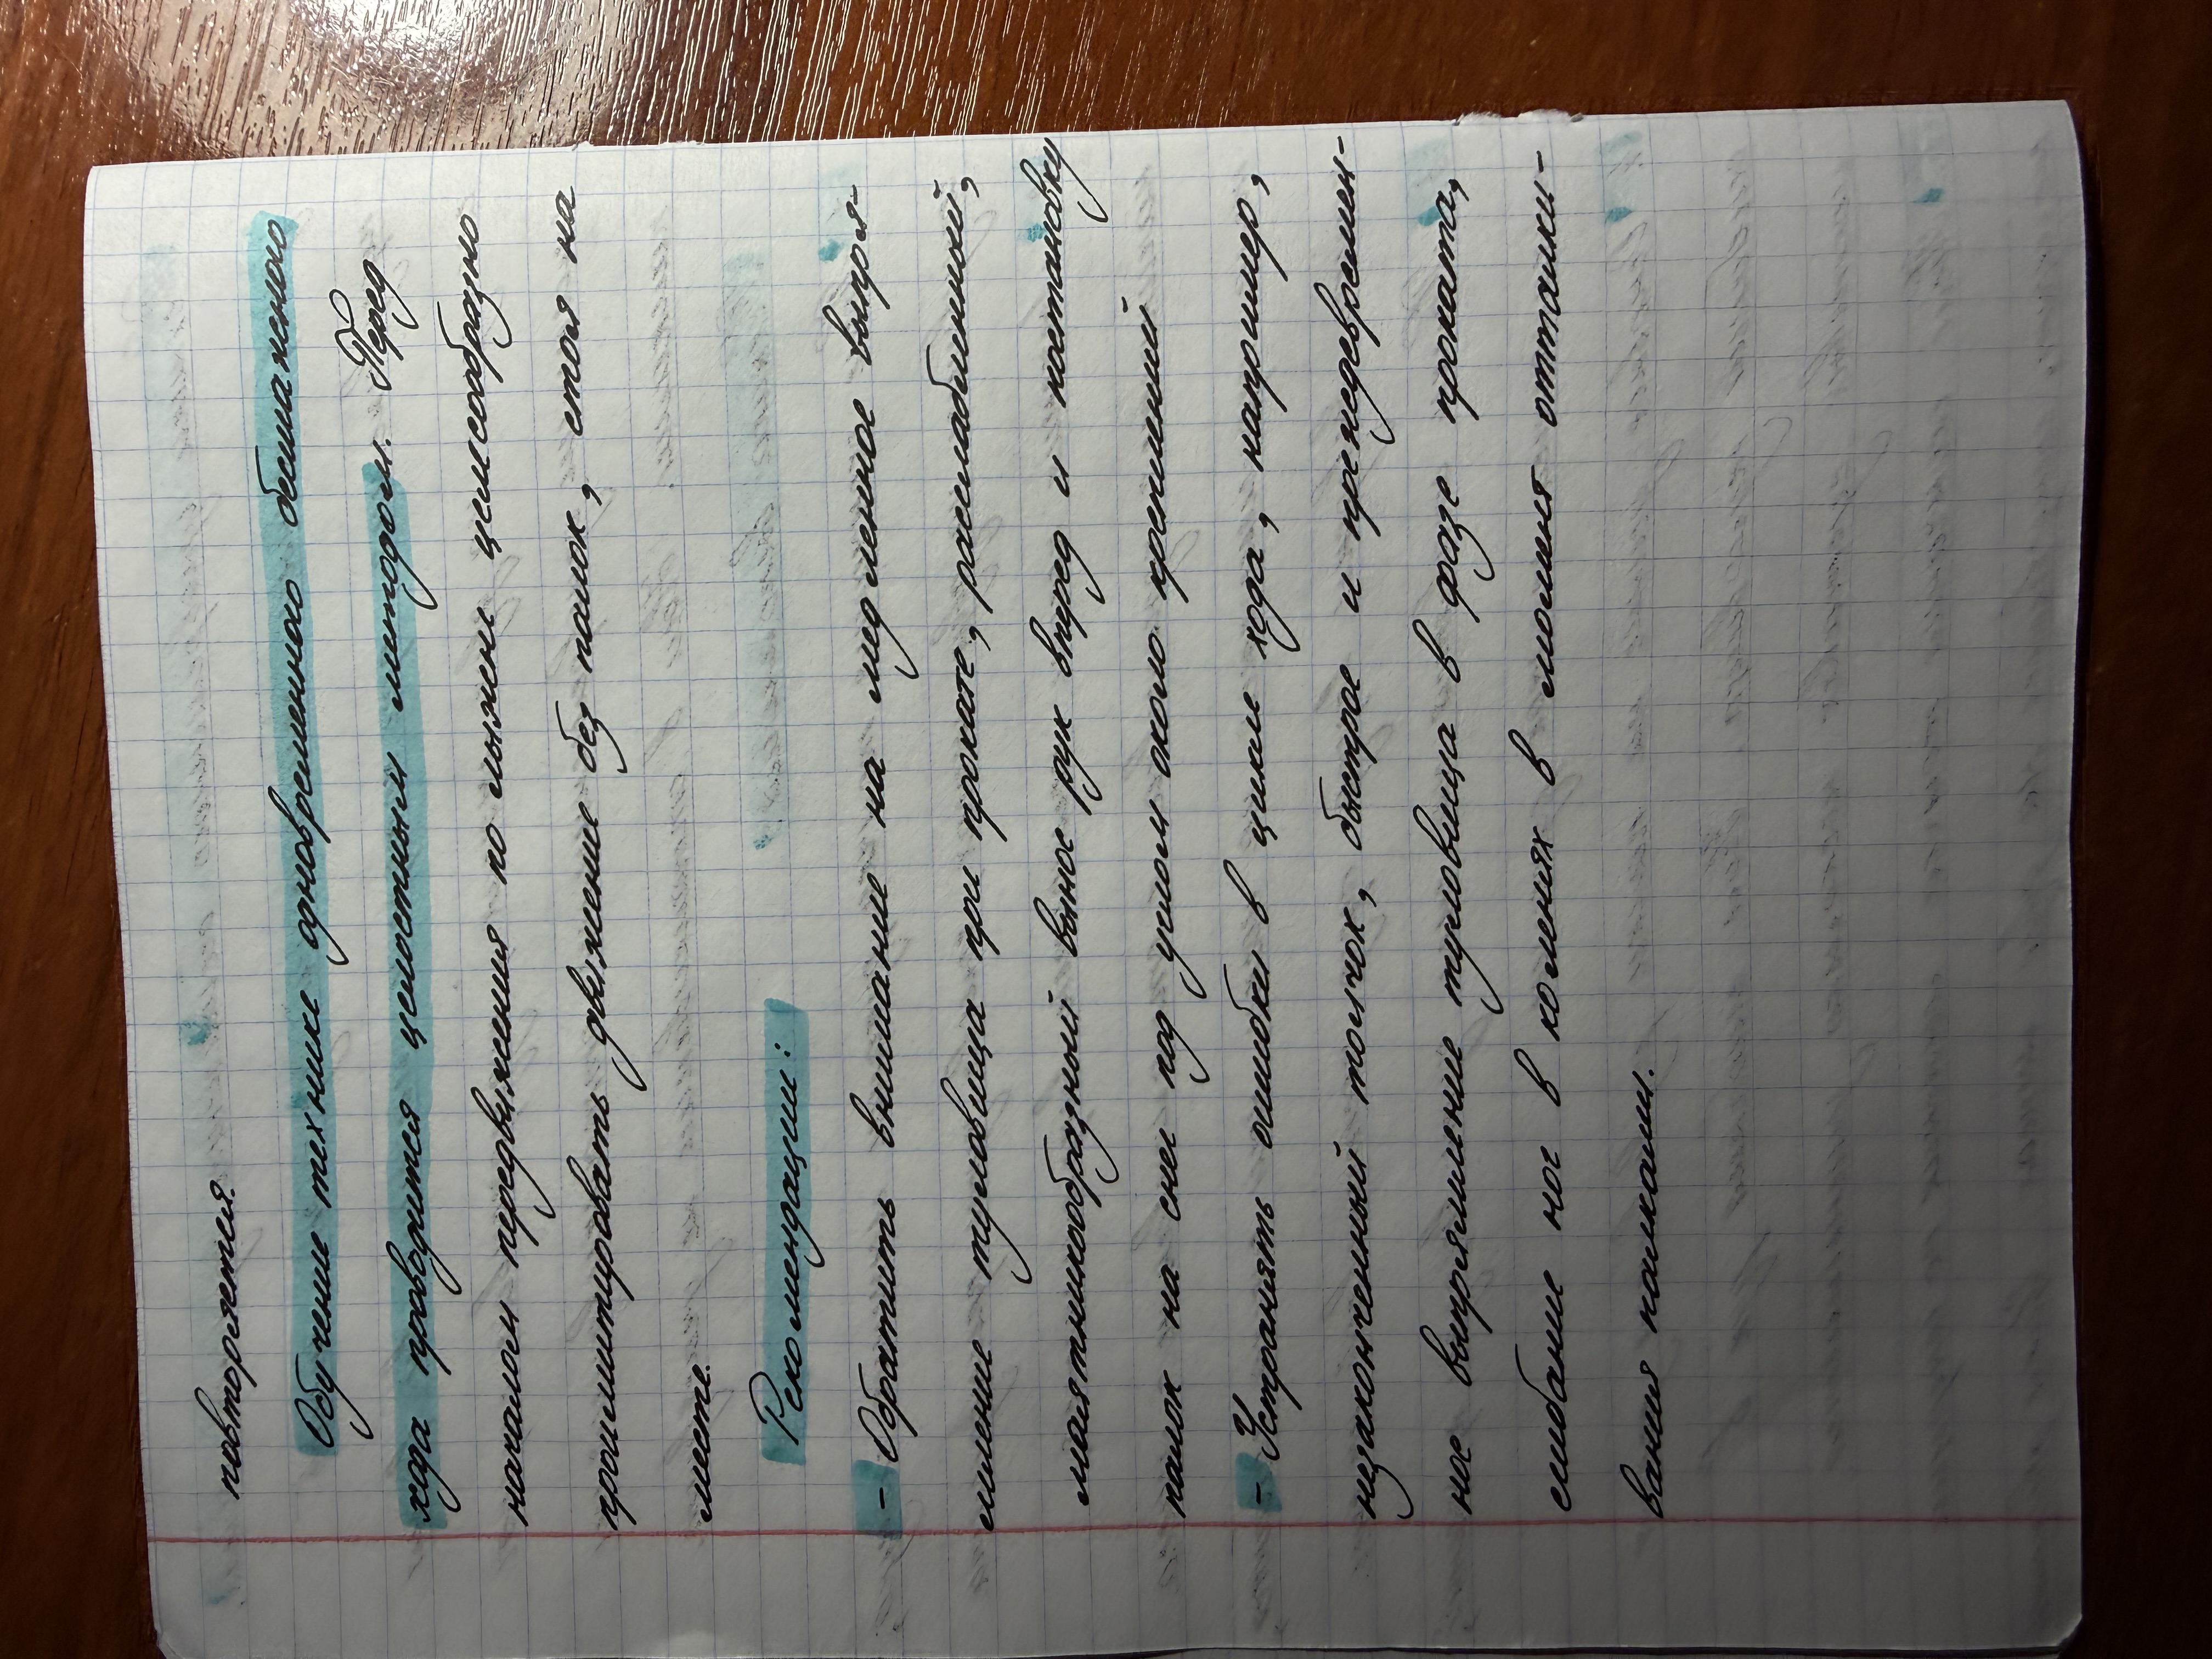 повторяется.
Обучение технике одновременного бесшажного
хода проводится целостным методом. Перед
началом передвижения по лыжне целесообразно
проимитировать движение без палок, стоя на
месте.
Рекомендации:
- Обратить внимание на медленное выпря-
мление туловища при прокате, расслабленный,
маятникообразный вынос рук вперед и постановку
палок на снег под углом около креплений
- Устранять ошибки в цикле хода, например,
незаконченный толчок, быстрое и преждевремен-
ное выпрямление туловища в фазе проката,
сгибание ног в коленях в момент отталки-
вания палками.